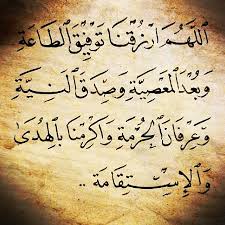 اَللّٰهُمَ ارْزُقْنَا تَوْفِيْقَ الطَّاعَةِ
وَبُعْدَ الْمَعْصِيَّةِ وَصِدْقَ النِّيَّةِ
وَعِرْفَانَ الْحُرْمَةِ وَاَكْرِمْنَا بِالْهُدَىٰ
وَالْاِسْتِقَامَةِ ..